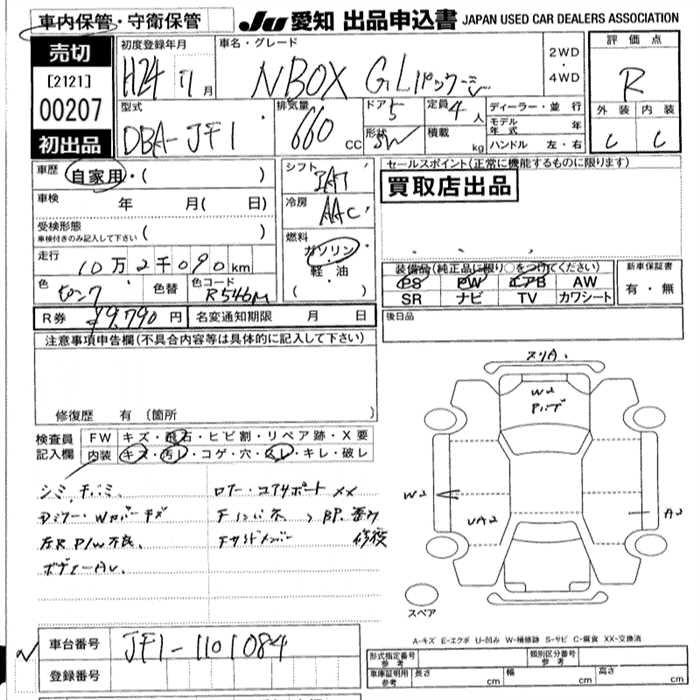 車内保管・守衛保管
JU 愛知 出品申込書 JAPAN USED CAR DEALERS ASSOCIATION
売切
[2121]
00207
初出品
初度登録年月
H24 11月
車名・グレード
NBOX GLパッケージ
2WD・4WD
評価点
R
外装 内装
C C
型式
DBA-JF1
排気量
660 CC
ドア 5
形状 SW
定員 4人
積載 kg
ディーラー・並行
モデル年式 年
ハンドル 左・右
車歴 自家用・( )
車検 年 月( 日)
受検形態
車検付きのみ記入して下さい ( )
走行
10万2千090km
色 色替 色コード
R546M
シフト
IAT
冷房
AAC
燃料
ガソリン・軽油
( )
セールスポイント(正常に機能するものに限ります)
買取店出品
装備品(純正品に限り○をつけてください)
PS PW エアB AW
SR ナビ TV カワシート
新車保証書
有・無
R券 ¥9,790 円 名変通知期限 月 日
後日品
注意事項申告欄(不具合内容等は具体的に記入して下さい)
修復歴 有 (箇所 )
検査員記入欄
FW キズ・飛石・ヒビ割・リペア跡・X要
内装 キズ・汚レ・コゲ・穴・スレ・キレ・破レ
シミ、
ロアー・コアサポート XX
Dミラー・Wカバーキズ
左R P/W不良、
修復
スリA.
W2
W2
UA2
A2
スペア
A-キズ E-エクボ U-凹み W-補修跡 S-サビ C-腐食 XX-交換済
車台番号 JF1-1101084
登録番号
形式指定番号 参考
類別区分番号 参考
車庫証明用 参考 長さ cm 幅 cm 高さ cm